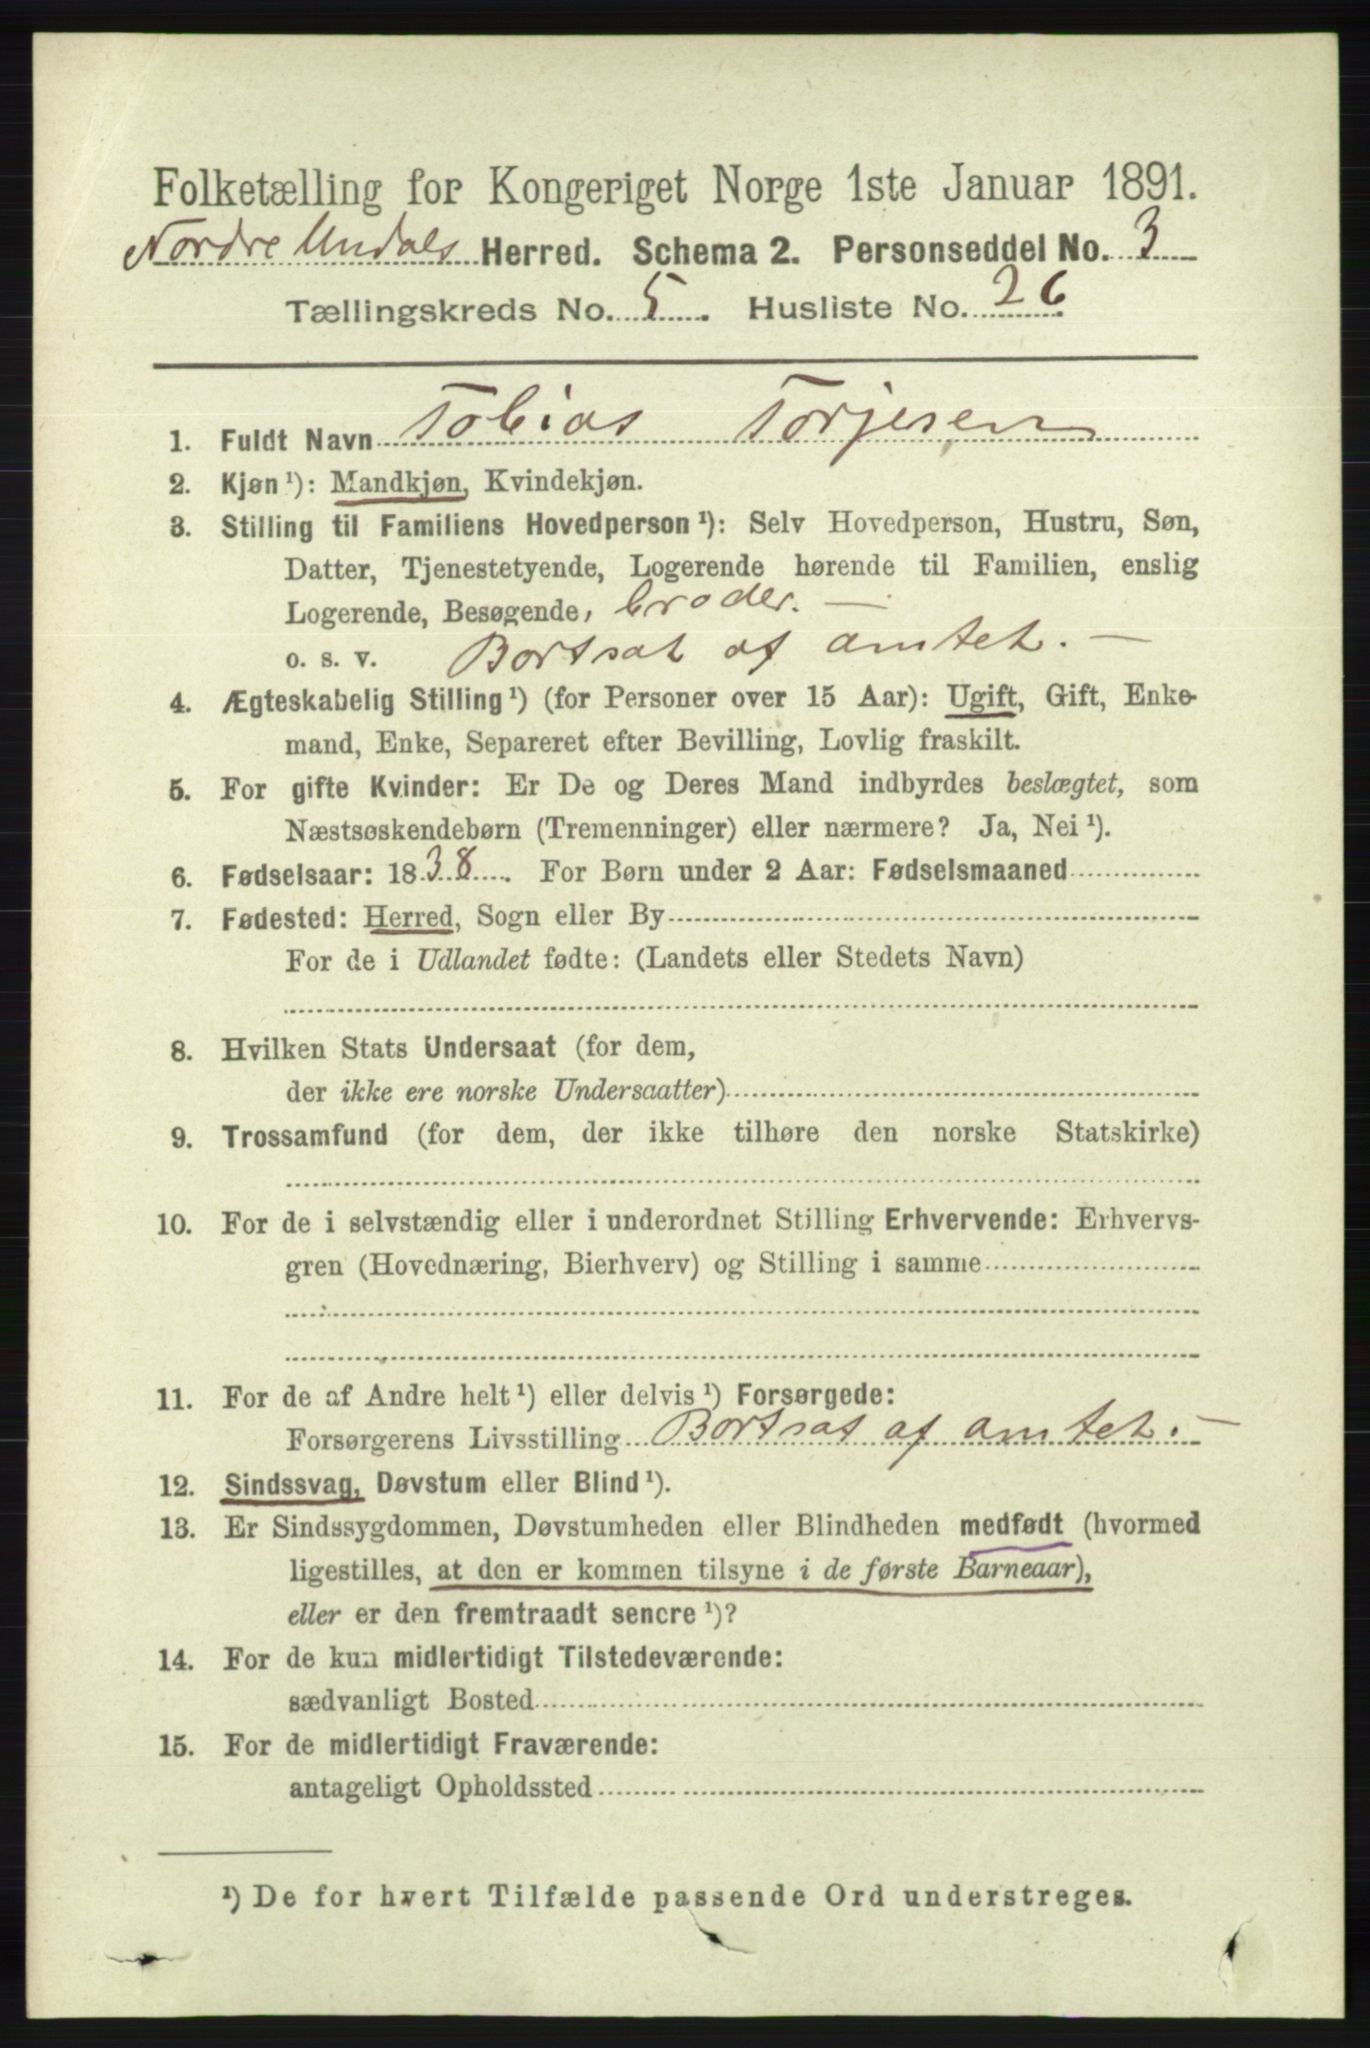 Folketælling for Kongeriget Norge 1ste Januar 1891.
Nordre Undals Herred. Schema 2. Personseddel No. 3
Tællingskreds No. 5. Husliste No. 26
1. Fuldt Navn Tobias Torjesen
2. Kjøn¹): Mandkjøn, Kvindekjøn.
3. Stilling til Familiens Hovedperson¹): Selv Hovedperson, Hustru, Søn,
Datter, Tjenestetyende, Logerende hørende til Familien, enslig
Logerende, Besøgende, broder. —
o. s. v. Bortsat af amtet. —
4. Ægteskabelig Stilling¹) (for Personer over 15 Aar): Ugift, Gift, Enke-
mand, Enke, Separeret efter Bevilling, Lovlig fraskilt.
5. For gifte Kvinder: Er De og Deres Mand indbyrdes beslægtet, som
Næstsøskendebørn (Tremenninger) eller nærmere? Ja, Nei¹).
6. Fødselsaar: 1838. For Børn under 2 Aar: Fødselsmaaned
7. Fødested: Herred, Sogn eller By
For de i Udlandet fødte: (Landets eller Stedets Navn)
8. Hvilken Stats Undersaat (for dem,
der ikke ere norske Undersaatter)
9. Trossamfund (for dem, der ikke tilhøre den norske Statskirke)
10. For de i selvstændig eller i underordnet Stilling Erhvervende: Erhvervs-
gren (Hovednæring, Bierhverv) og Stilling i samme
11. For de af Andre helt¹) eller delvis¹) Forsørgede:
Forsørgerens Livsstilling Bortsat af amtet. —
12. Sindssvag, Døvstum eller Blind¹).
13. Er Sindssygdommen, Døvstumheden eller Blindheden medfødt (hvormed
ligestilles, at den er kommen tilsyne i de første Barneaar),
eller er den fremtraadt senere¹)?
14. For de kun midlertidigt Tilstedeværende:
sædvanligt Bosted
15. For de midlertidigt Fraværende:
antageligt Opholdssted
¹) De for hvert Tilfælde passende Ord understreges.